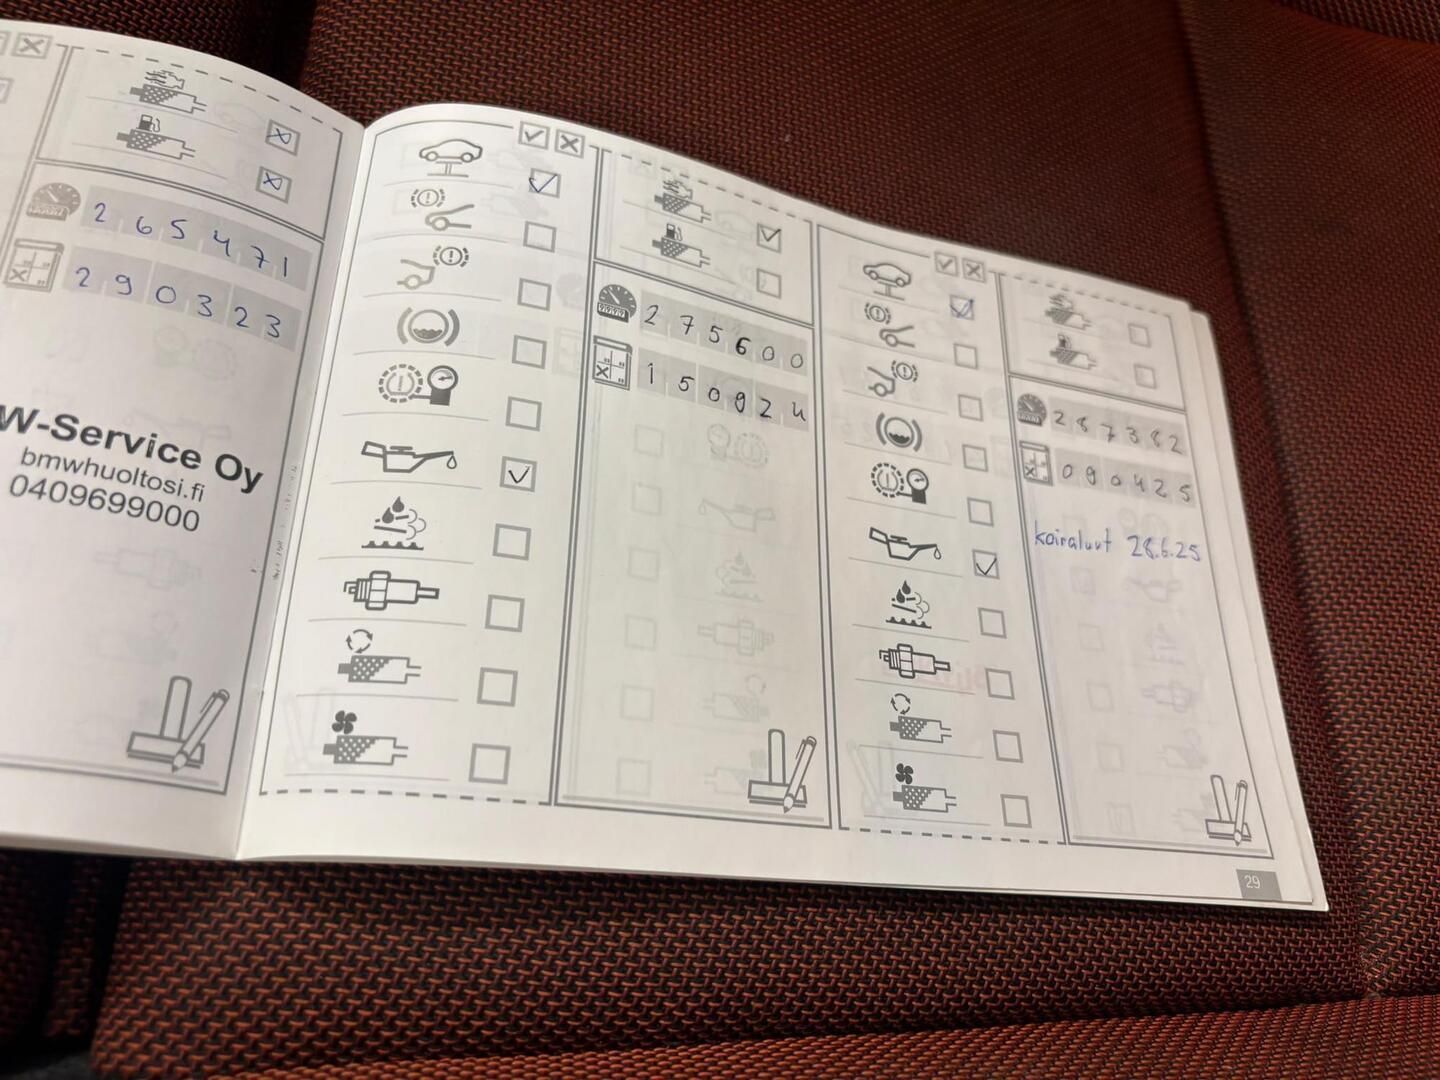 265471
290323
W-Service Oy
bmwhuoltosi.fi
0409699000
275600
150924
287382
090425
koiraluut 28.6.25
29